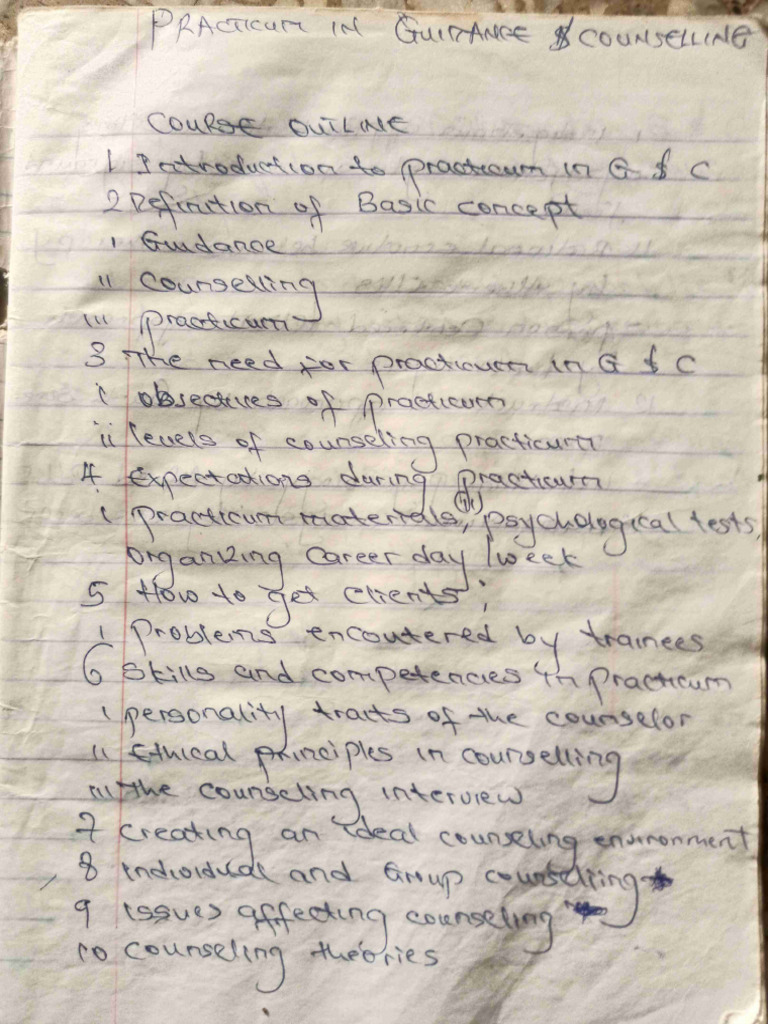 PRACTICUM IN GUIDANCE & COUNSELLING
COURSE OUTLINE
1 Introduction to practicum in G & C
2 Definition of Basic concept
i Guidance
ii Counselling
iii practicum
3 The need for practicum in G & C
i objectives of practicum
ii levels of counseling practicum
4 Expectations during practicum
i practicum materials, (ii) psychological tests,
organizing career day / week
5 How to get clients;
i problems encoutered by trainees
6 skills and competencies in practicum
i personality traits of the counselor
ii Ethical principles in counselling
iii the counseling interview
7 creating an ideal counseling environment
8 individual and Group counselling
9 issues affecting counseling
10 counseling theories